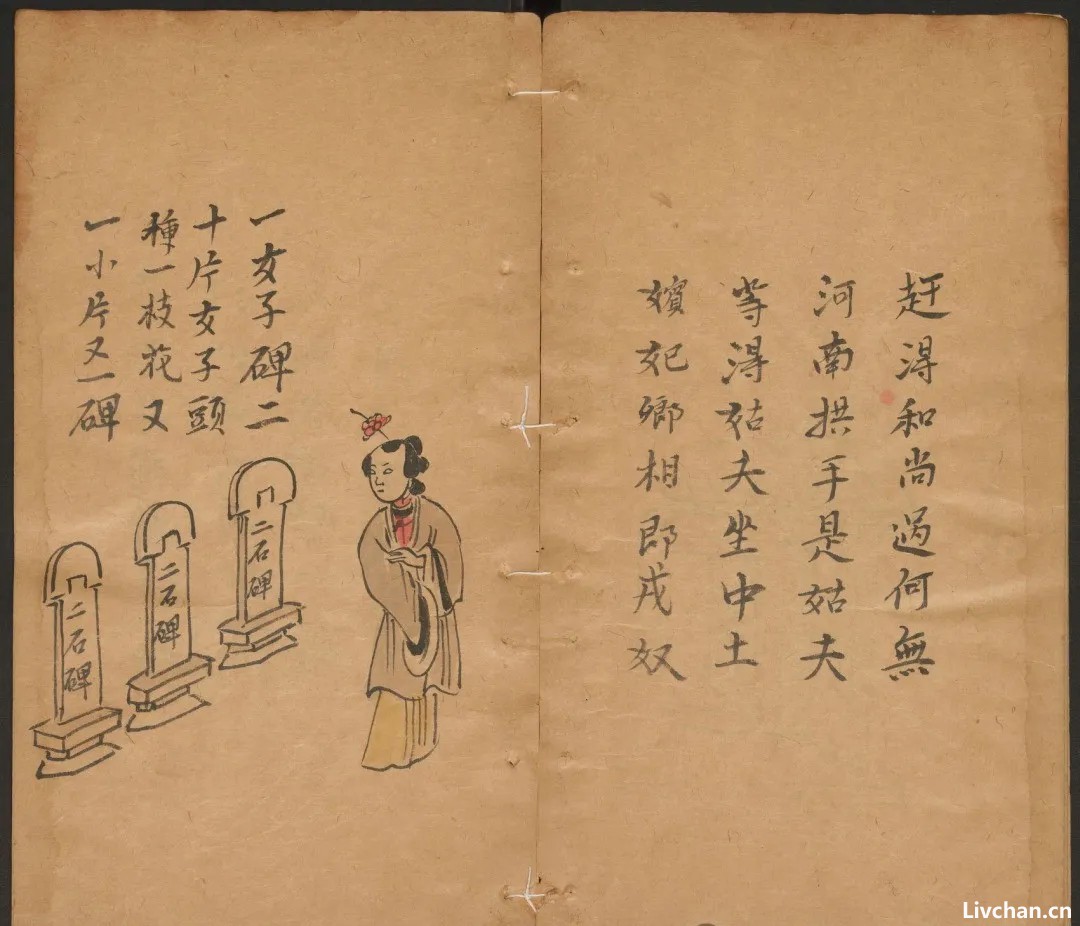 赶淂和尚過何無
河南拱手是姑夫
等淂姑夫坐中土
嬪妃鄉相郎戎奴
一女子碑二
十片女子頭
種一枝花又
一小片又一碑
二石碑
二石碑
二石碑
Livchan.cn